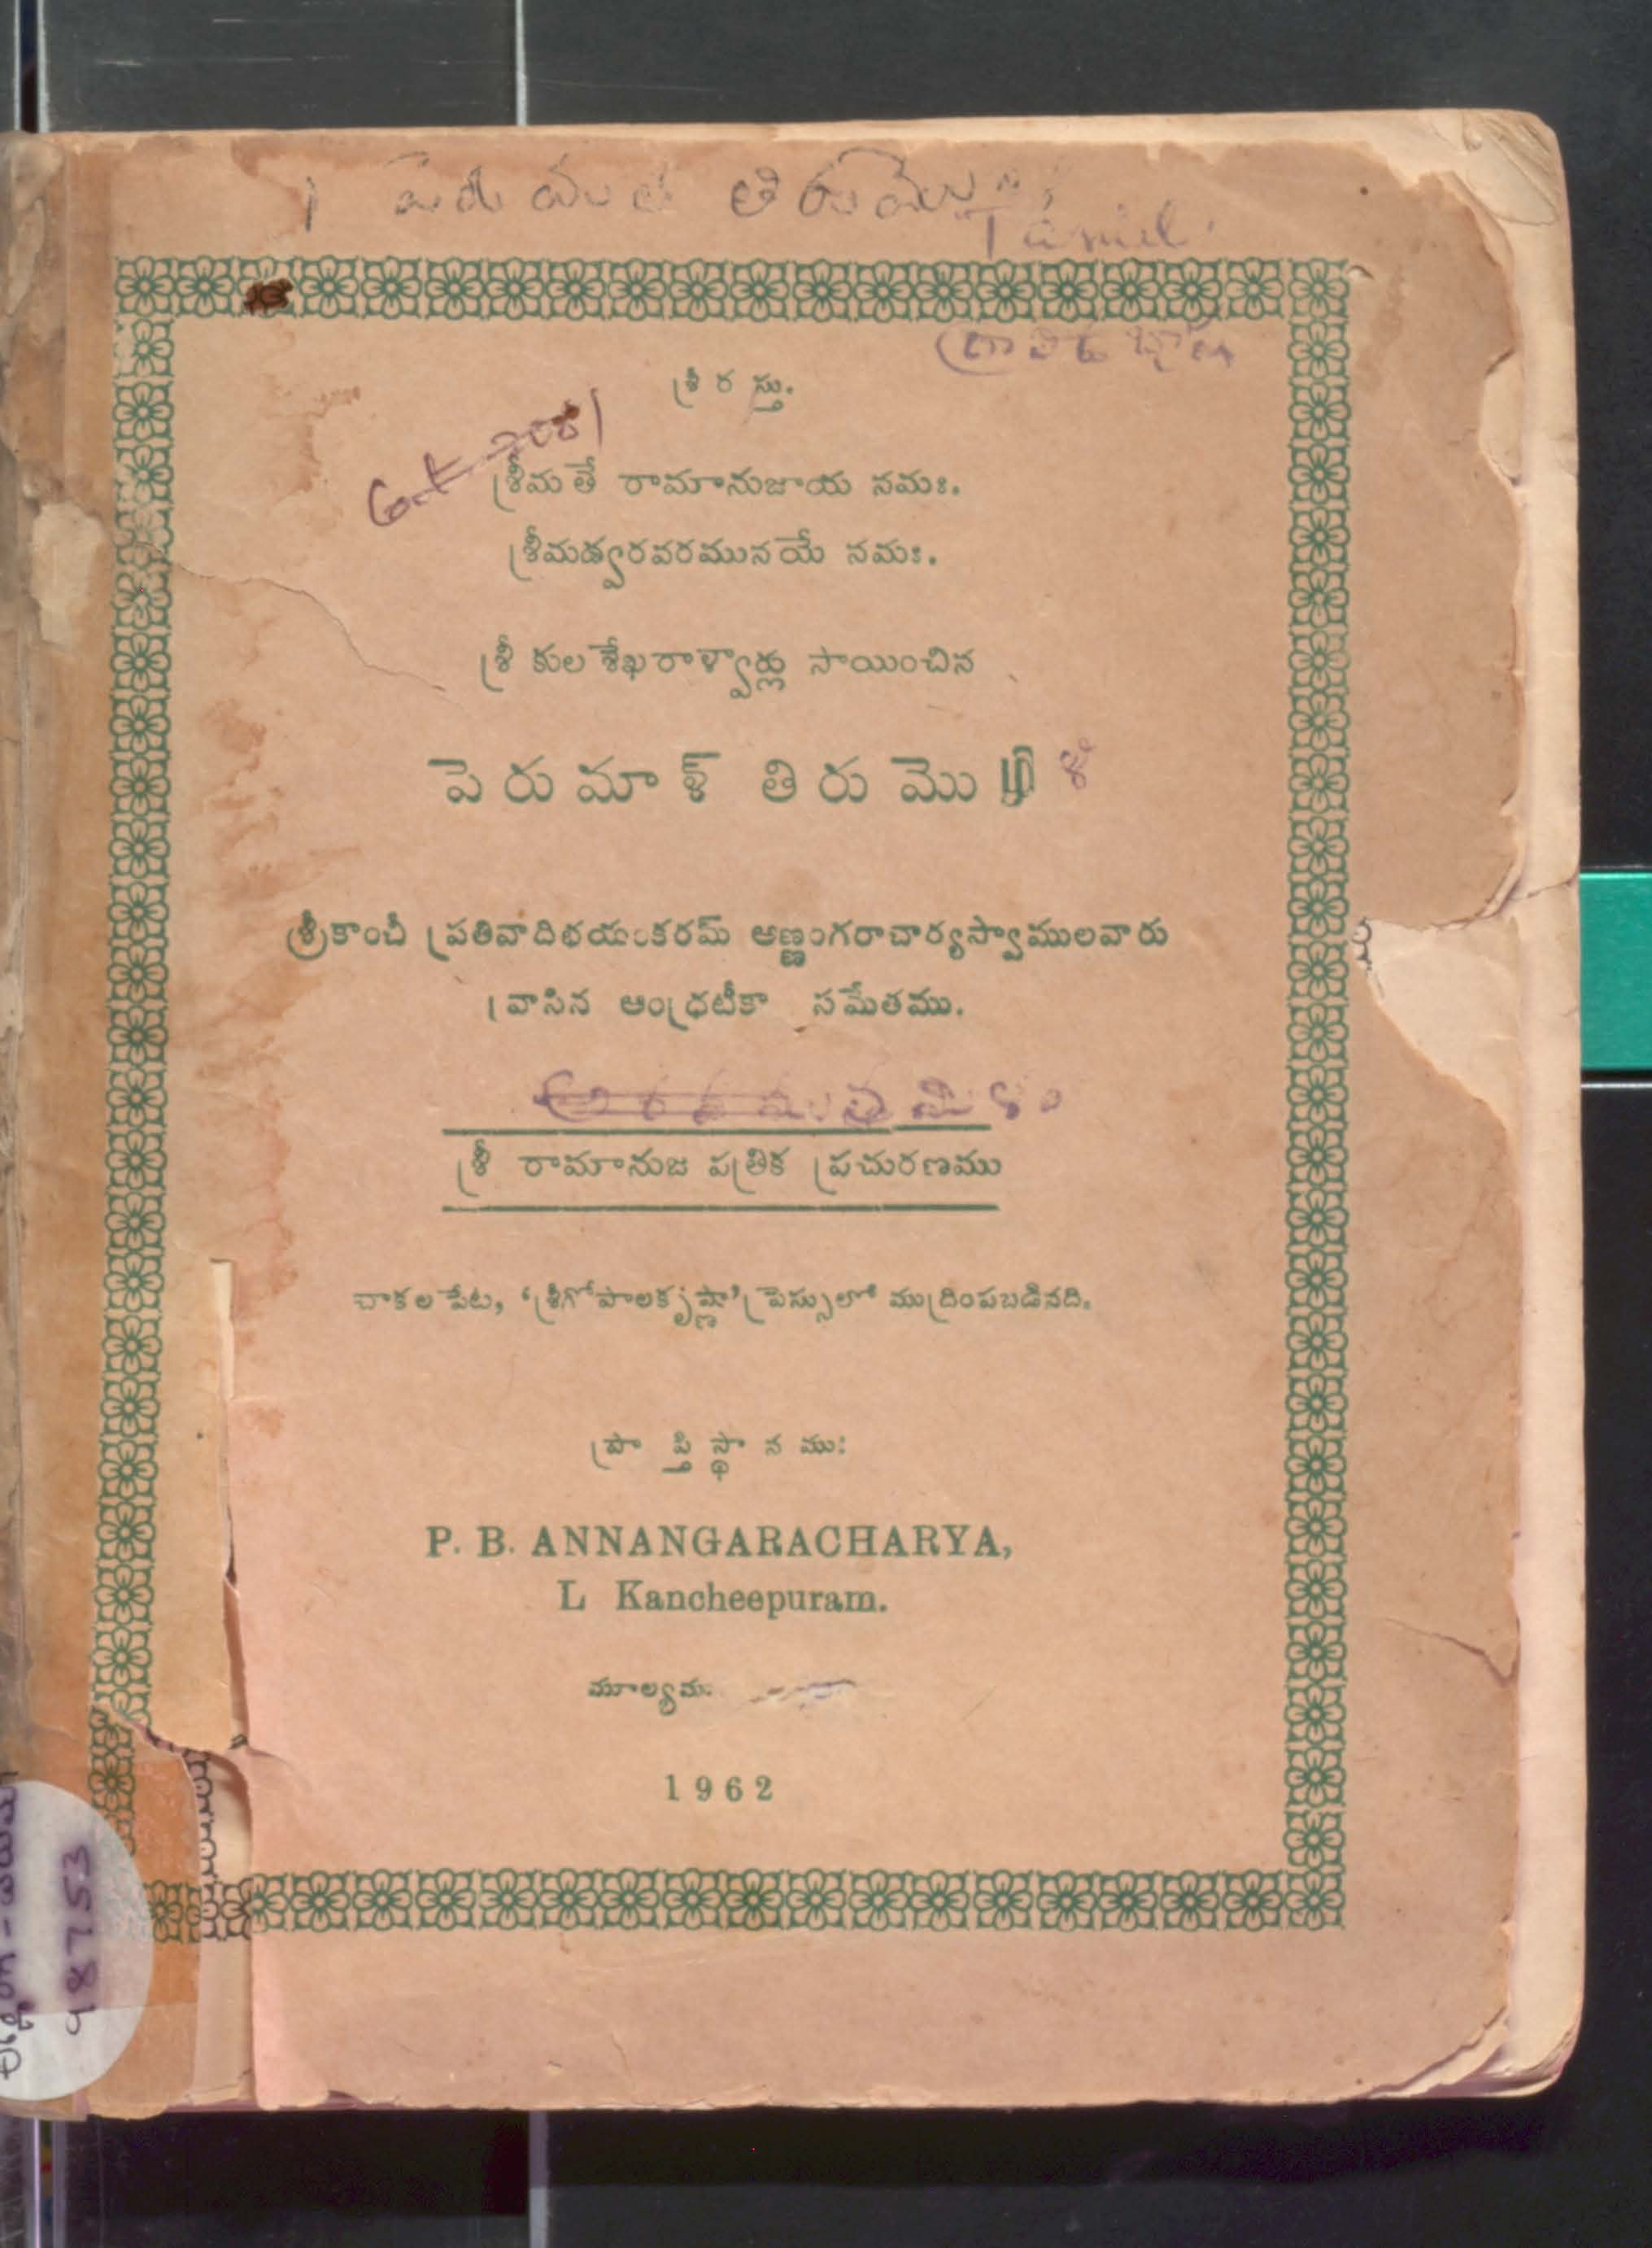 Tamil
శ్రీ ర స్తు.
శ్రీమతే రామానుజాయ నమః.
శ్రీమద్వరవరమునయే నమః.
శ్రీ కులశేఖరాళ్వార్లు సాయించిన
పెరుమాళ్ తిరుమొழி
శ్రీకాంచీ ప్రతివాదిభయంకరమ్ అణ్ణంగరాచార్యస్వాములవారు
వ్రాసిన ఆంధ్రటీకా సమేతము.
శ్రీ రామానుజ పత్రిక ప్రచురణము
చాకలపేట, ‘శ్రీగోపాలకృష్ణా’ ప్రెస్సులో ముద్రింపబడినది.
ప్రా ప్తి స్థా న ము:
P. B. ANNANGARACHARYA,
L Kancheepuram.
మూల్యము
1962
98753